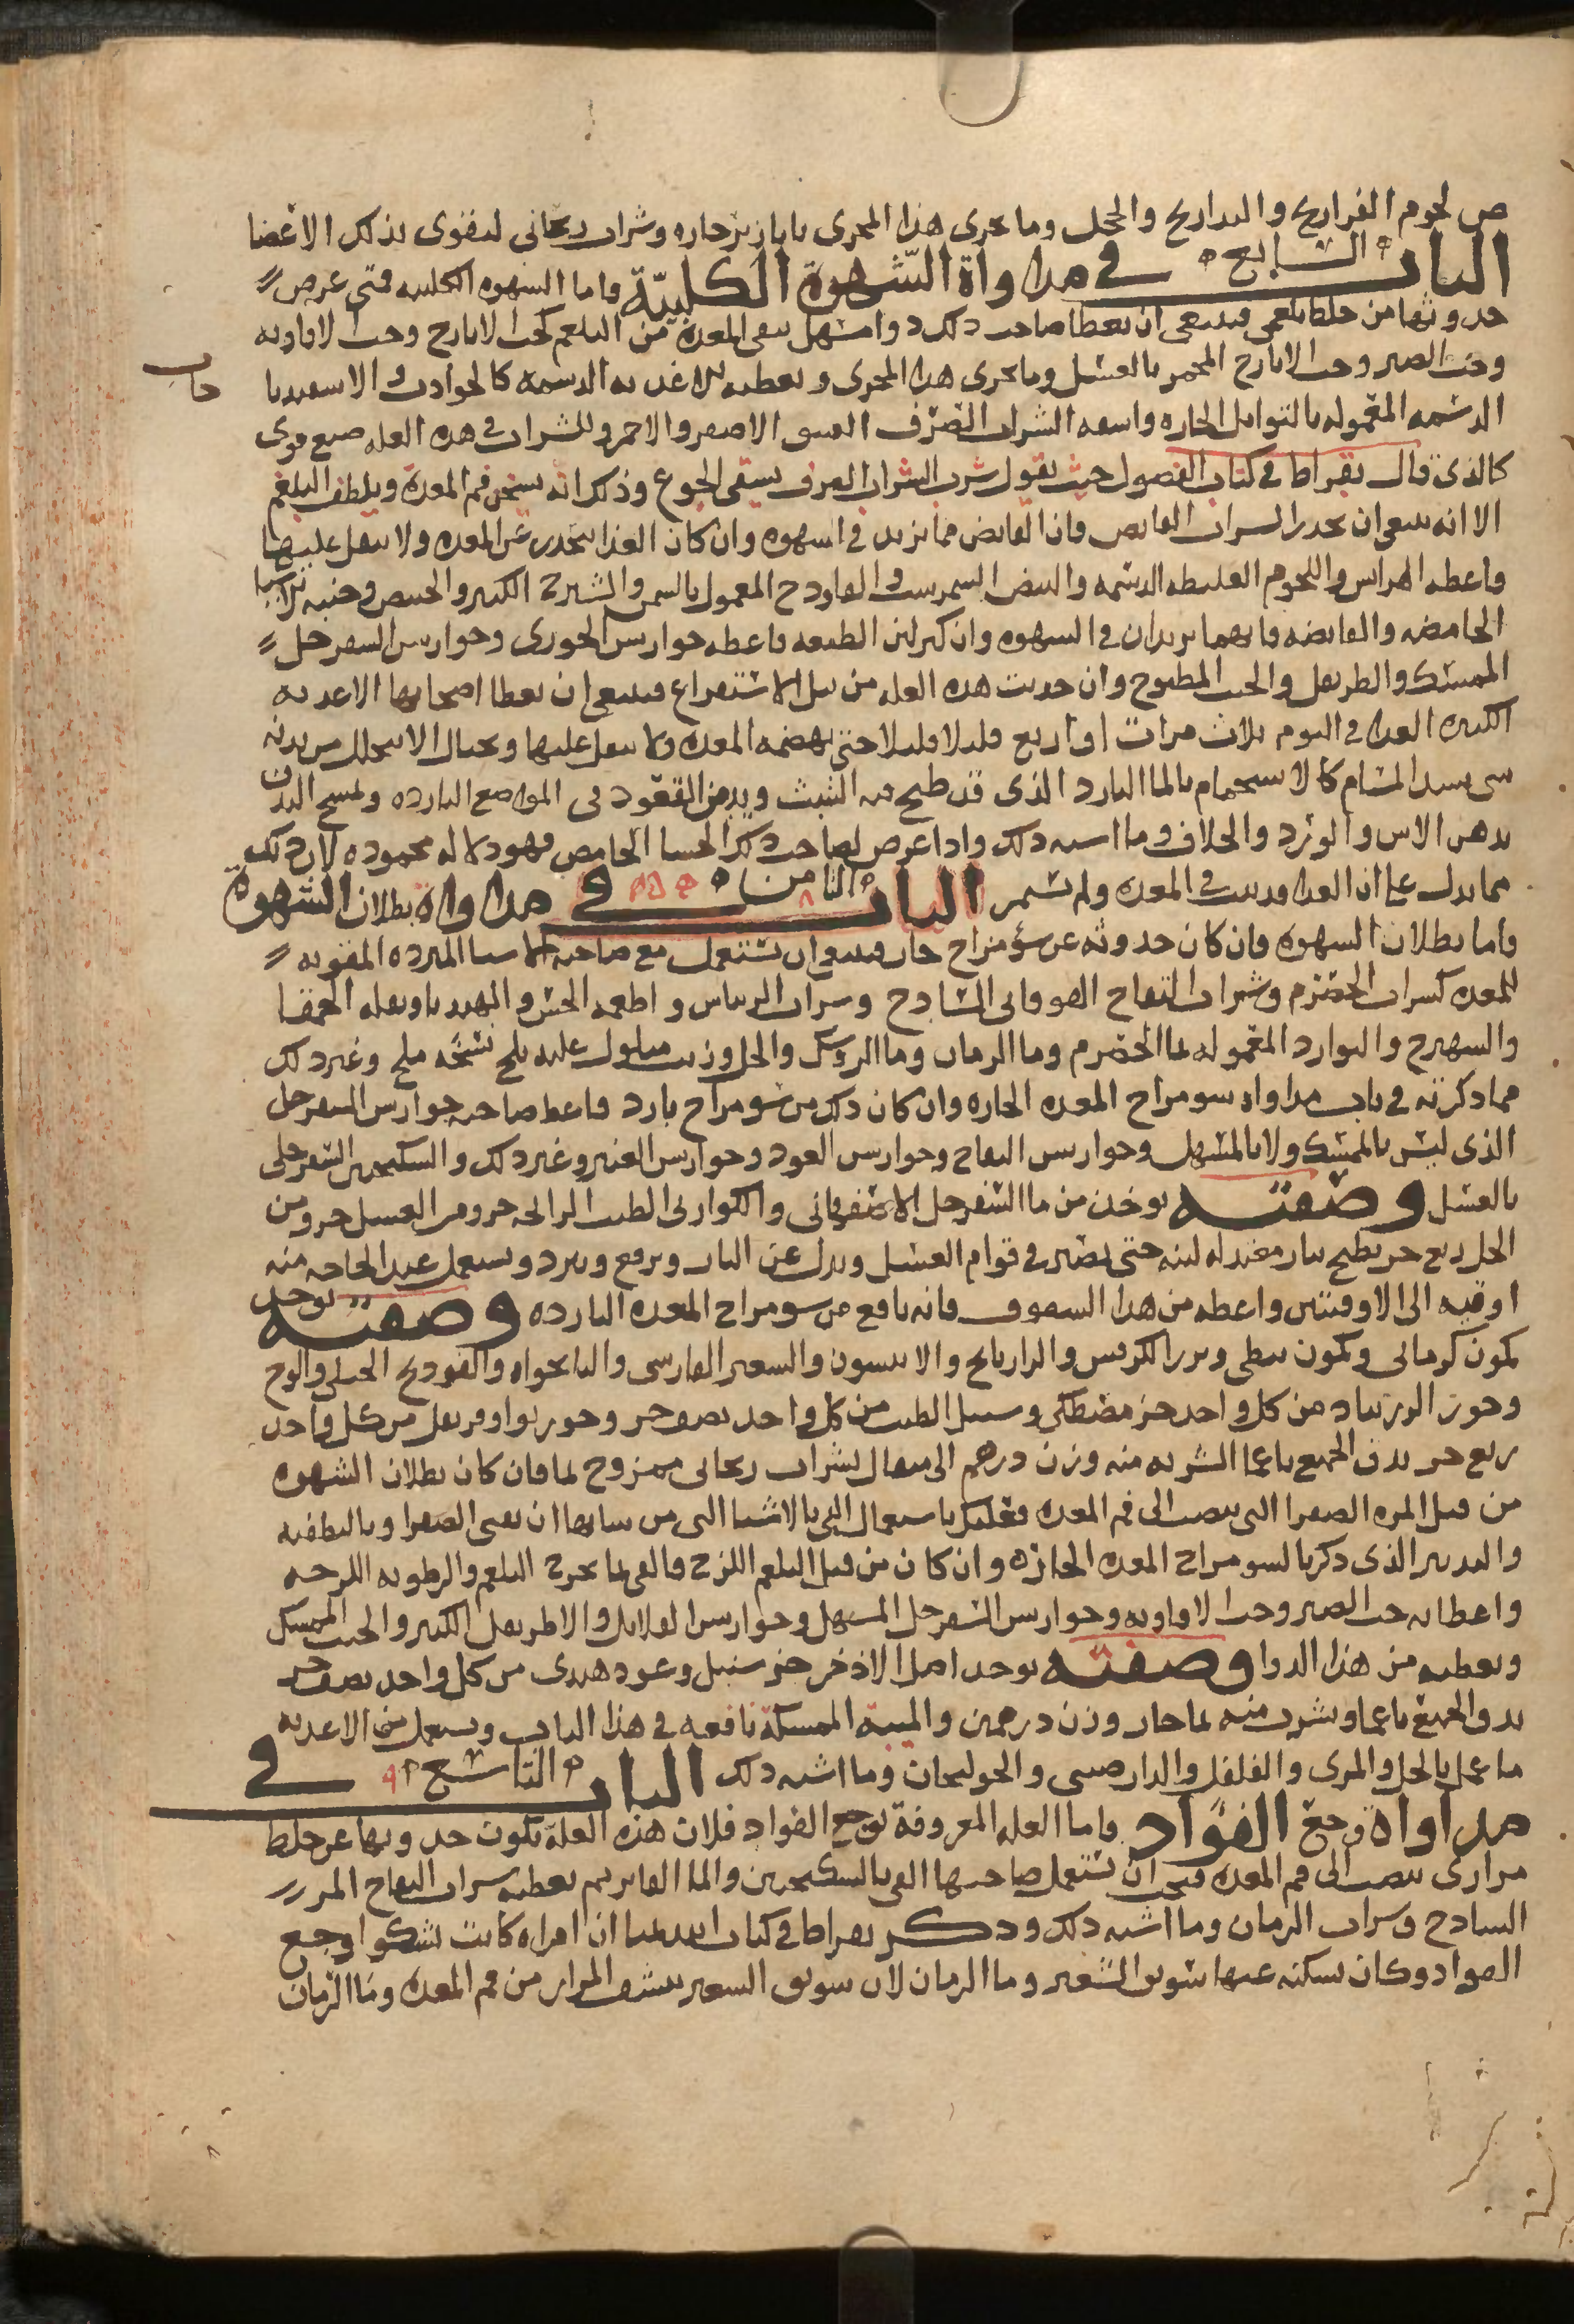 من لحوم الفراريج والدراريج والحجل وما يجرى هذا المجرى بابازير حاره وشراب ريحانى لتقوى بذلك الاعضا
الباب السابع فى مداواة الشهوة الكلبية واما الشهوه الكلبيه فمتى عرض
حدوثها من خلط بلغمى فينبغى ان يعطا صاحب ذلك دوا مسهل ينقى المعدة من البلغم كحب الايارج وحب الافاويه
وحب الصبر وحب الايارج المخمر بالعسل وما يجرى هذا المجرى ويعطيه الاغذيه الدسمه كالجوادب والاسفيدبا
جات
الدسمه المعموله بالتوابل الحاره واسقه الشراب الصرف العتيق الاصفر والاحمر وللشراب فى هذه العله صنع قوى
كالذى قال بقراط فى كتاب الفصول حيث يقول شرب الشراب الصرف يشفى الجوع وذلك انه يسخن فم المعدة ويلطف البلغم
الا انه ينبغى ان يحذر الشراب القابض فان القابض مما يزيد فى الشهوه وان كان الغذا ينحدر عن المعده ولا يثقل عليها
فاعطه الهرايس واللحوم الغليظه الدسمه والبيض النيمرشت والفالودج المعمول بالسمن والشيرج الكثير والخبيص وجنبه الاشيا
الحامضه والقابضه فانهما يزيدان فى الشهوه وان كثر لين الطبيعه فاعطه جوارش الخوزى وجوارش السفرجل
الممسك والطريفل والخبث المطبوخ وان حدثت هذه العله من قبل الاستفراغ فينبغى ان يعطا اصحابها الاغذيه
الكثيره الغذا فى اليوم ثلاث مرات او اربع قليلا قليلا حتى تهضمه المعده ولا يثقل عليها ويحتال الا يتحلل من بدنه
شى يسد المسام كالاستحمام بالما البارد الذى قد طبخ فيه الشبث ويدمن القعود فى المواضع البارده ويمسح البدن
بدهن الاس والورد والخلاف وما اشبه ذلك واذا عرض لصاحب ذلك الجشا الحامض فهو دلاله محموده لان ذلك
مما يدل على ان الغذا قد ثبت فى المعده ولم تستمر الباب الثامن ٨ فى مداواة بطلان الشهوة
واما بطلان الشهوه فان كان حدوثه عن سؤ مزاج حار فينبغى ان تستعمل مع صاحبه الاشيا المبرده المقويه
للمعده كشراب الحصرم وشراب التفاح الفوقانى السادج وشراب الريباس واطعمه الخس والهندبا وبقله الحمقا
والسهيرج والبوارد المعموله بما الحصرم وما الرمان وما الريباس والخل وزيت مبلول عليه بلح نشحه ملح وغير ذلك
مما ذكرته فى باب مداواه سو مزاج المعده الحاره وان كان ذلك من سو مزاج بارد فاعط صاحبه جوارش السفرجل
الذى ليس بالممسك ولا بالمسهل وجوارش التفاح وجوارش العود وجوارش العنبر وغير ذلك والسكنجبين السفرجلى
بالعسل وصفته يوخذ من ما السفرجل الاصفهانى والكوارنى الطيب الرايحه جزو ومن العسل جزو ومن
الخل ربع جز يطبخ بنار معتدله لينه حتى يصير فى قوام العسل وينزل عن النار ويرفع ويبرد ويستعمل عند الحاجه منه
اوقيه الى الاوقيتين واعطه من هذا السفوف فانه نافع من سو مزاج المعده البارده وصفته يوخذ
كمون كرمانى وكمون نبطى وبزر الكرفس والرازيانج والانيسون والسعتر الفارسى والنانخواه والفودنج الجبلى والوج
وحوز الزرنباد من كل واحد جز مصطكى وسنبل الطيب من كل واحد نصف جز وجوزبوا وقرنفل من كل واحد
ربع جز يدق الجميع ناعما الشربه منه وزن درهم الى مثقال بشراب ريحانى ممزوج بما فان كان بطلان الشهوه
من قبل المره الصفرا التى تنصب الى فم المعده فعليك باستعمال القى بالاشيا التى من شانها ان تقى الصفرا وبالتطفيه
والتدبير الذى ذكرنا لسو مزاج المعده الحاره وان كان من قبل البلغم اللزج فالقى بما يخرج البلغم والرطوبه اللزجه
واعطايه حب الصبر وحب الافاويه وجوارش السفرجل المسهل وجوارش الفلافل والاطريفل الكبير والخبث الممسك
ويعطيه من هذا الدوا وصفته يوخذ اصل الاذخر جز سنبل وعود هندى من كل واحد نصف جز
يدق الجميع ناعما ويشرب منه بما حار وزن درهمين والميبة الممسكة نافعه فى هذا الباب ويستعمل من الاغذيه
ما عمل بالخل والمرى والفلفل والدارصينى والخولنجان وما اشبه ذلك الباب التاسع ٩ فى
مداواة وجع الفؤاد واما العله المعروفة بوجع الفواد فلان هذه العلة تكون حدوثها عن خلط
مرارى ينصب الى فم المعده فيجب ان تستعمل صاحبها القى بالسكنجبين والما الفاتر ثم تعطيه شراب التفاح المز
السادج وشراب الرمان وما اشبه ذلك وذكر بقراط فى كتاب ابيديميا ان امراه كانت تشكوا وجع
الفواد وكان تسكنه عنها سويق الشعير وما الرمان لان سويق الشعير ينشف المرار من فم المعده وما الرمان